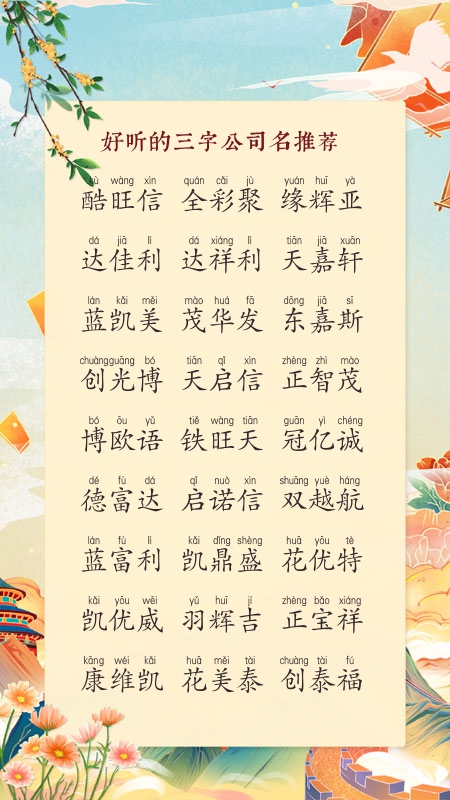 好听的三字公司名推荐
kù wàng xìn quán cǎi jù yuán huī yà
酷旺信 全彩聚 缘辉亚
dá jiā lì dá xiáng lì tiān jiā xuān
达佳利 达祥利 天嘉轩
lán kǎi měi mào huá fā dōng jiā sī
蓝凯美 茂华发 东嘉斯
chuàngguāng bó tiān qǐ xìn zhèng zhì mào
创光博 天启信 正智茂
bó ōu yǔ tiě wàng tiān guān yì chéng
博欧语 铁旺天 冠亿诚
dé fù dá qǐ nuò xìn shuāng yuè háng
德富达 启诺信 双越航
lán fù lì kǎi dǐng shèng huā yōu tè
蓝富利 凯鼎盛 花优特
kǎi yōu wēi yǔ huī jí zhèng bǎo xiáng
凯优威 羽辉吉 正宝祥
kāng wéi kǎi huā měi tài chuàng tài fú
康维凯 花美泰 创泰福